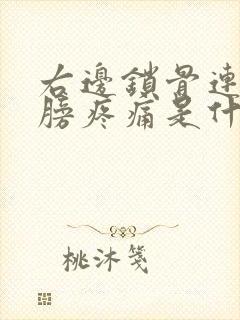 右邊鎖骨連
膀疼痛是什
桃沐箋